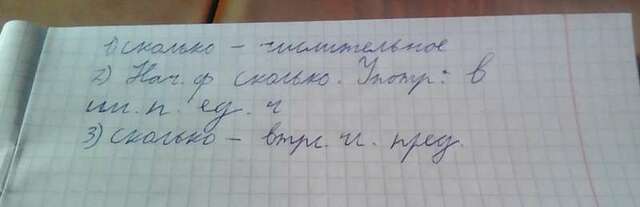 1) сколько – числительное
2) Нач. ф сколько. Употр: в
им. п. ед. ч
3) сколько – втр. чл. пред.